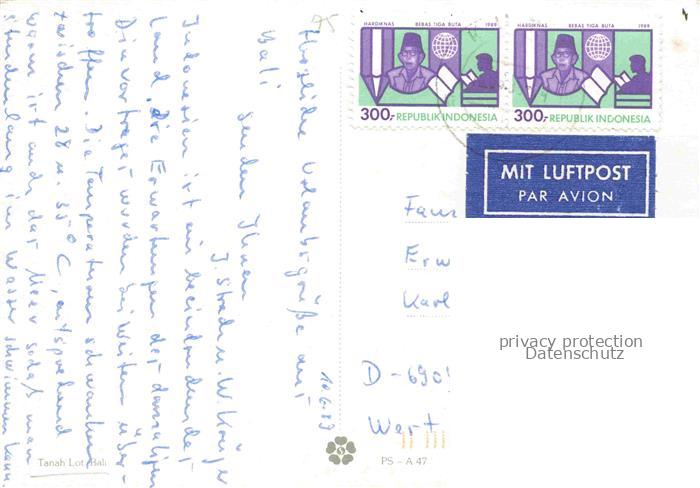 HARDIKNAS BEBAS TIGA BUTA 1989
300,- REPUBLIK INDONESIA
HARDIKNAS BEBAS TIGA BUTA 1989
300,- REPUBLIK INDONESIA
MIT LUFTPOST
PAR AVION
10.6.89
Herzliche Urlaubsgrüße aus
Bali
senden Ihnen
J. Strad u. W. Krüger
Indonesien ist ein beeindruckendes
Land, die Erwartungen der damaligen
Diavorträge wurden bei weitem über-
troffen. Die Temperaturen schwanken
zwischen 28 u. 35°C, entsprechend
warm ist auch das Meer sodaß man
stundenlang im Wasser schwimmen kann.
Erw
Karl
D-690
Wert
privacy protection
Datenschutz
Tanah Lot, Bali
PS - A 47